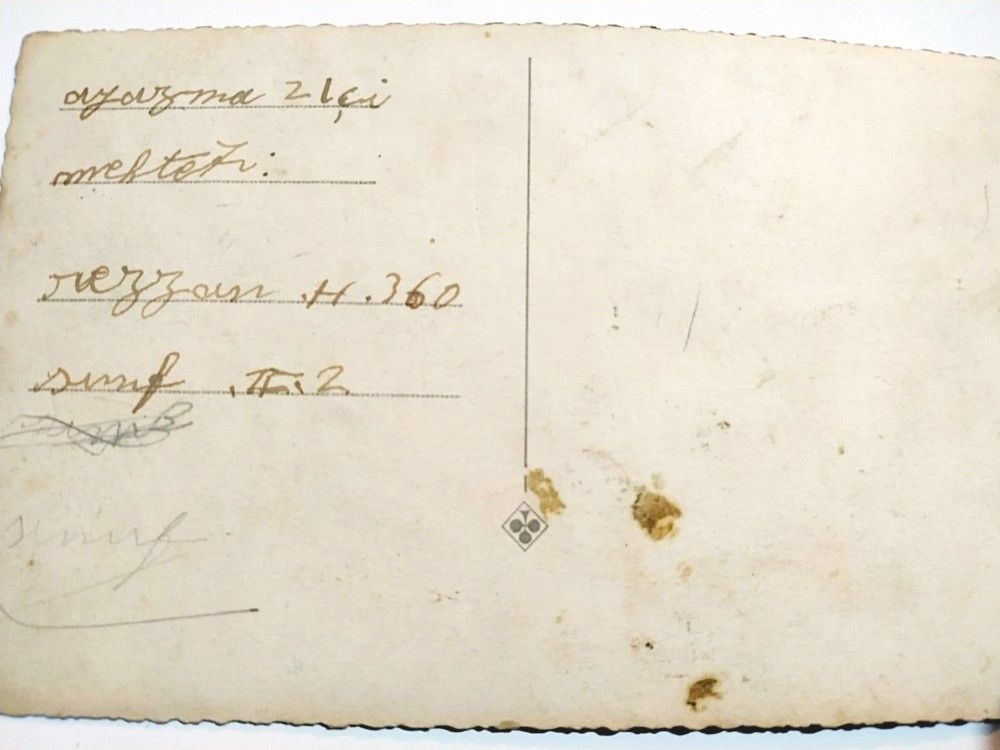 ayazma 21çi
mektebi:
rezzan .H.360
sınıf .II.2
sınıf